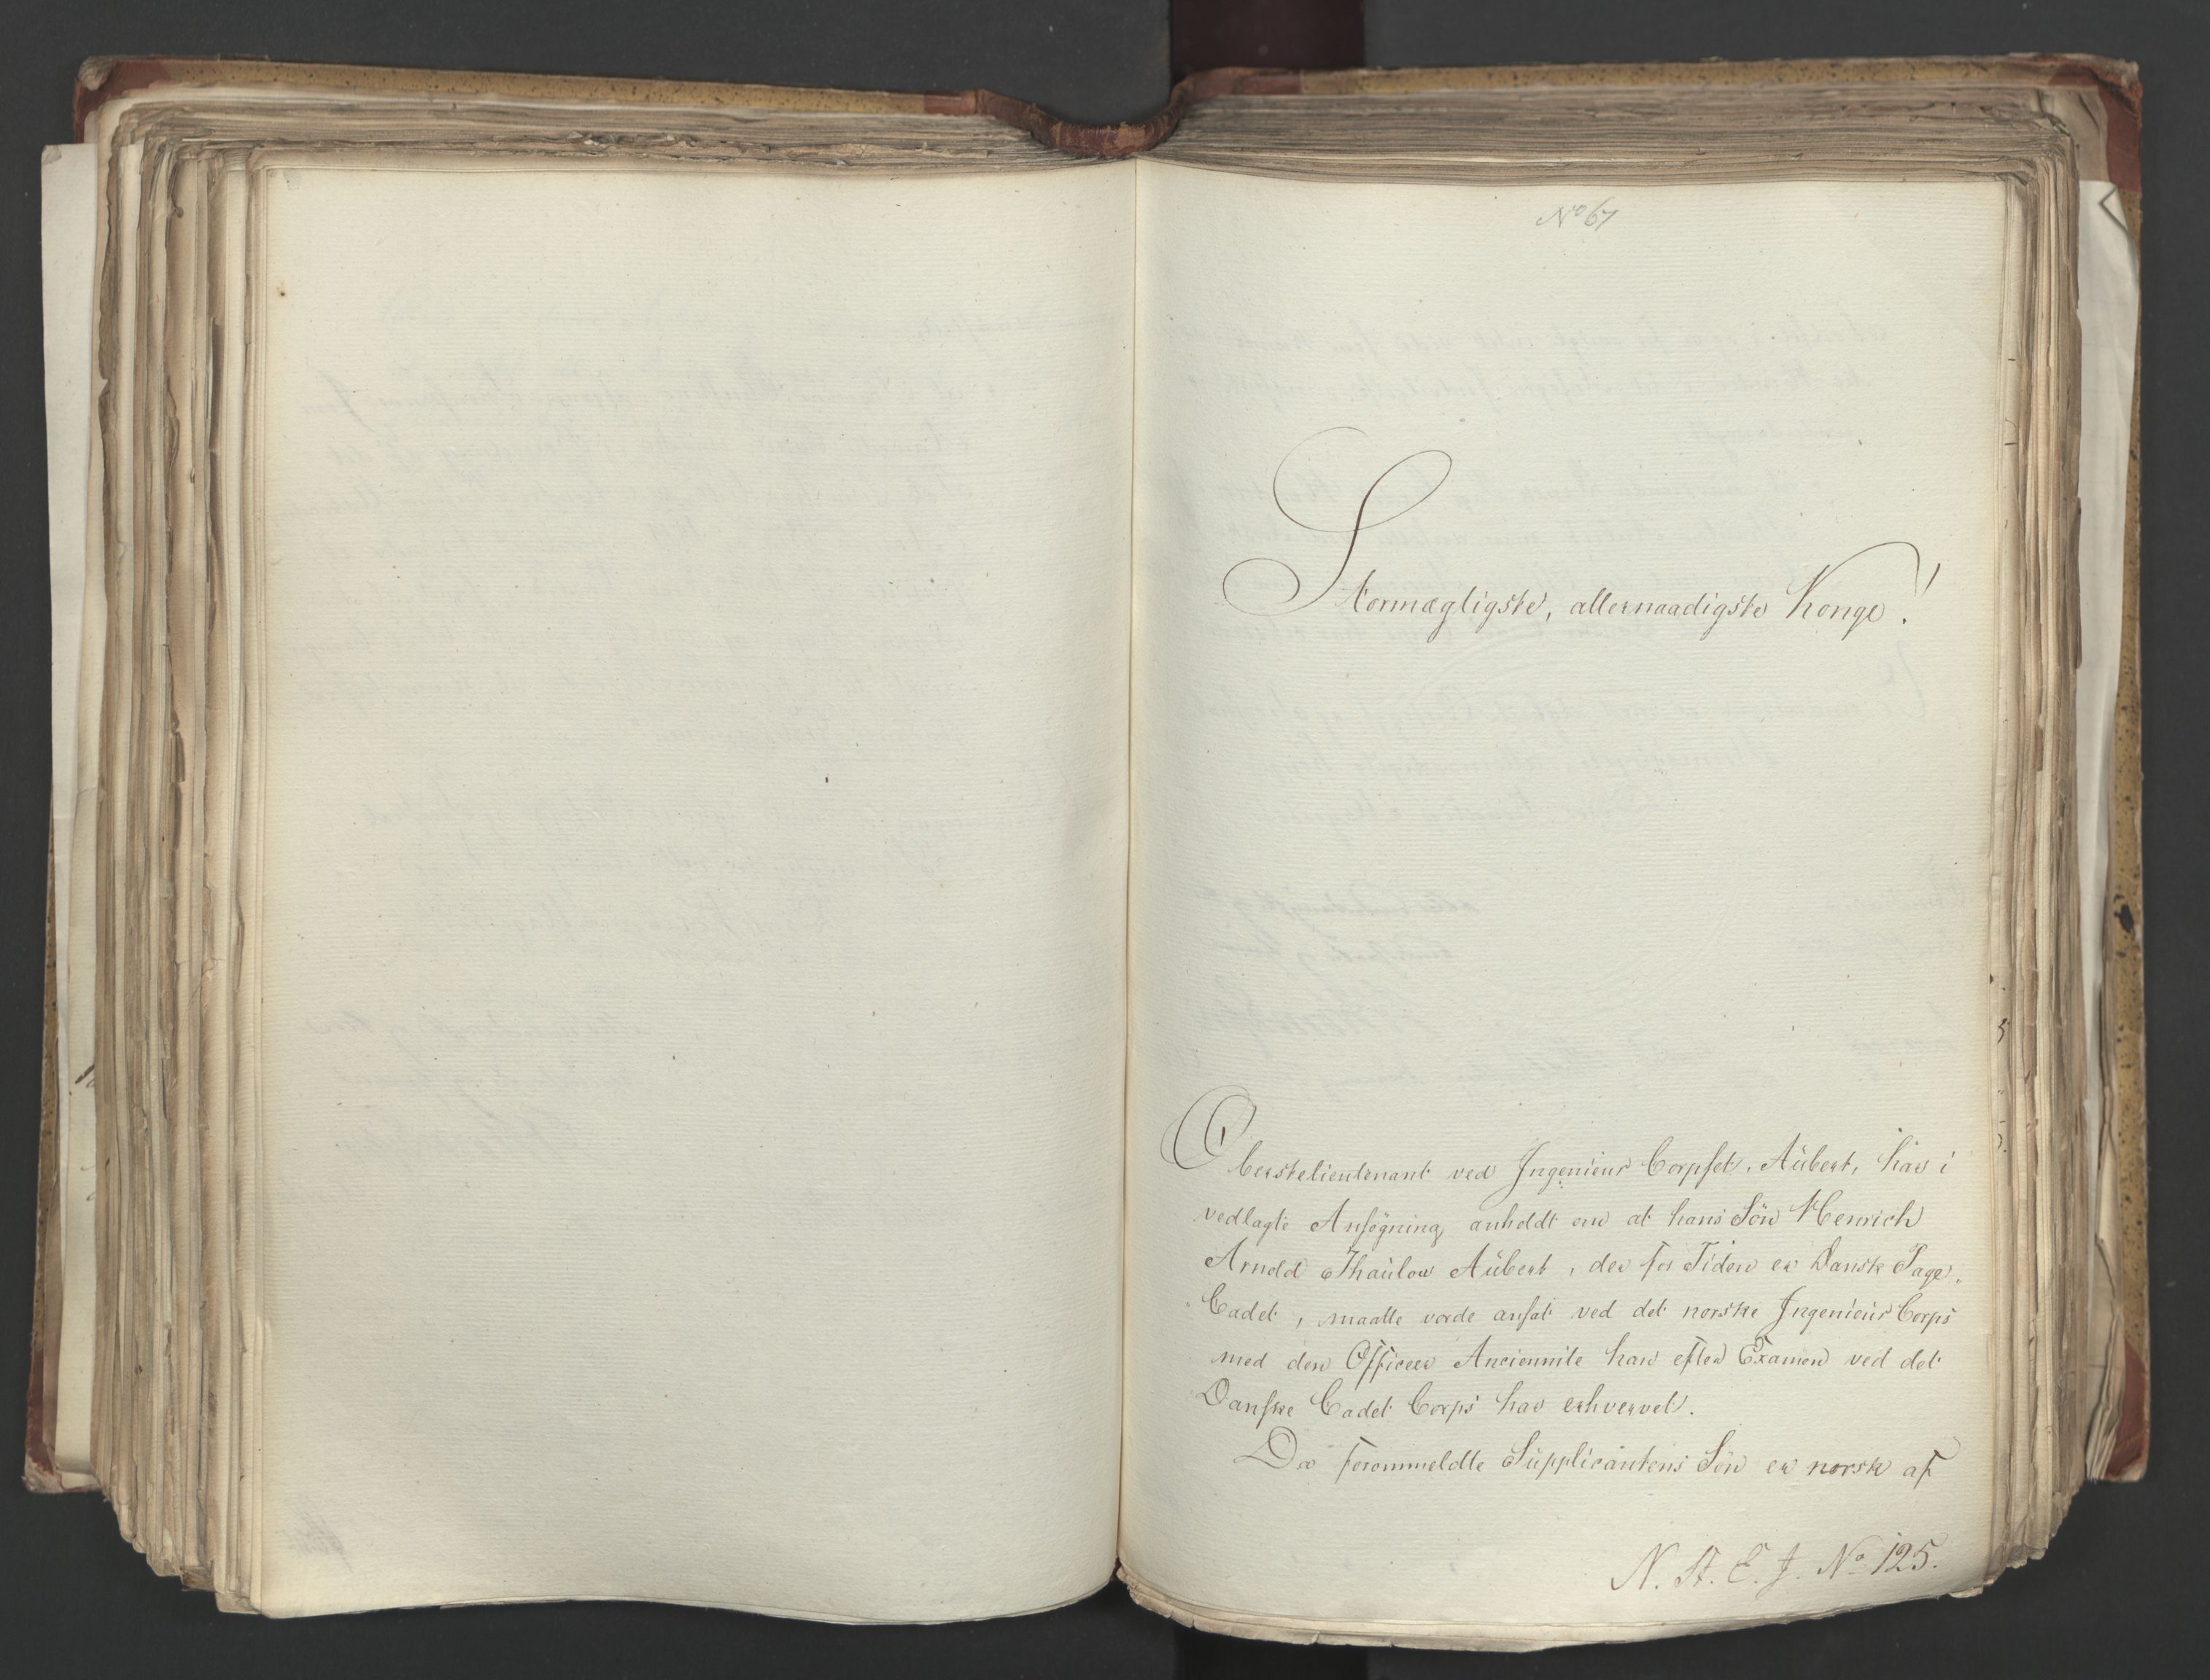 No 67
Stormægtigste, allernaadigste Konge!
Oberstelieutenant ved Ingenieur Corpset, Aubert, har i
vedlagte Ansøgning anholdt om at hans Søn Henrich
Arnold Thaulow Aubert, der for Tiden er Dansk Page-
Cadet, maatte vorde ansat ved det norske Ingenieur Corps
med den Officeer Anciennite han efter Examen ved det
Danske Cadet Corps har erhvervet.
Da forommeldte Supplicantens Søn er norsk af
N. St. E. J. No 125.